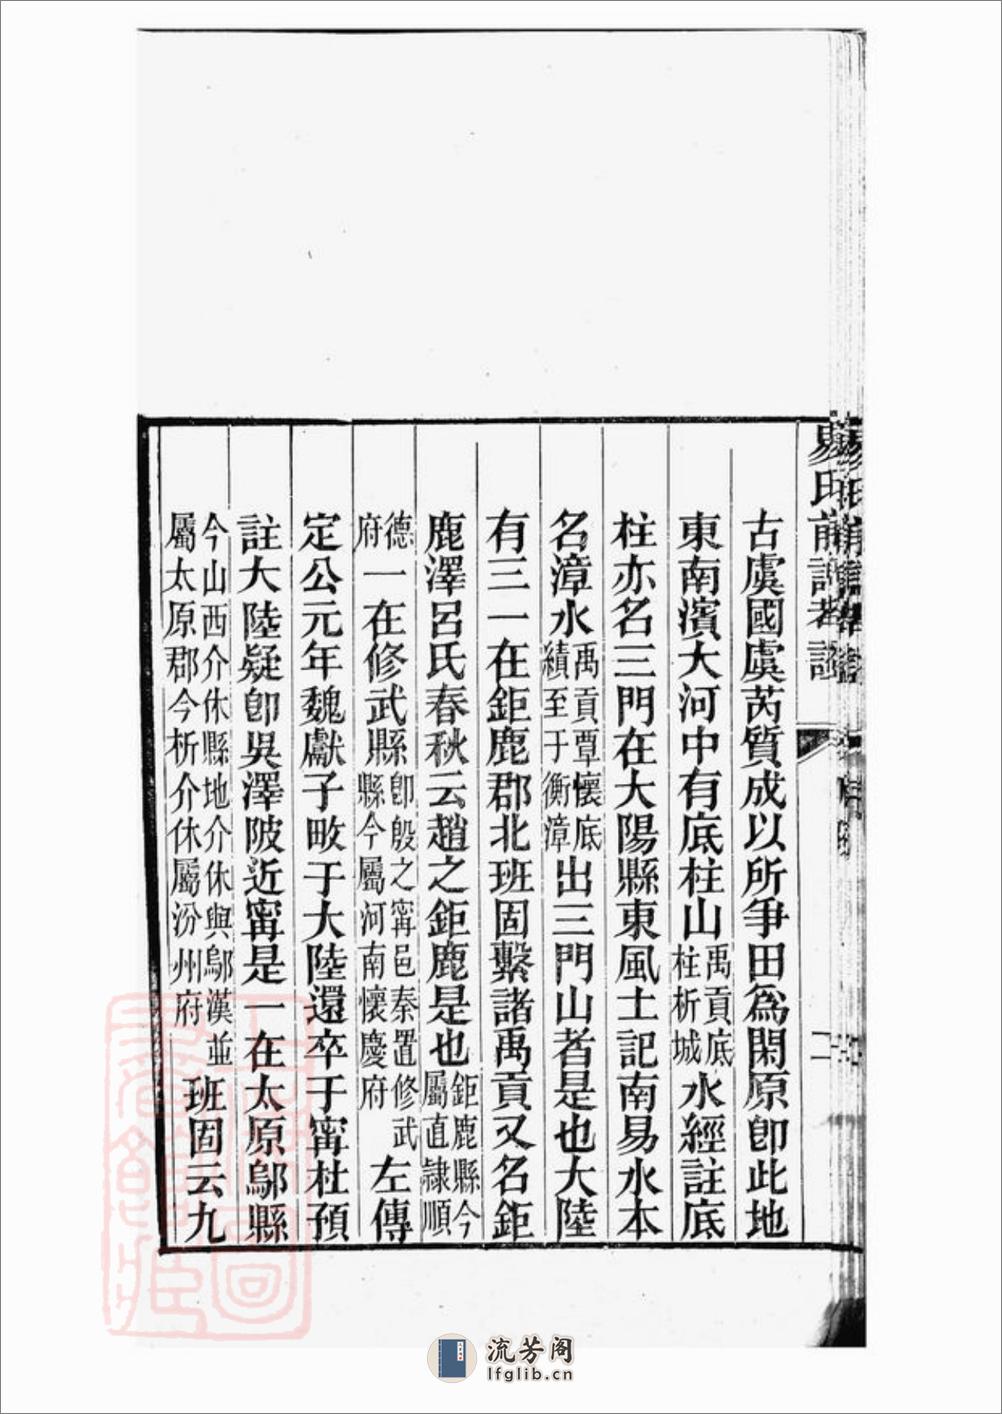 古虞國虞芮質成以所爭田爲閑原卽此地
東南濱大河中有底柱山禹貢底柱析城水經註底
柱亦名三門在大陽縣東風土記南易水本
名漳水禹貢覃懷底績至于衡漳出三門山者是也大陸
有三一在鉅鹿郡北班固繫諸禹貢又名鉅
鹿澤呂氏春秋云趙之鉅鹿是也鉅鹿縣今屬直隷順
德府一在修武縣卽殷之甯邑秦置修武縣今屬河南懷慶府左傳
定公元年魏獻子畋于大陸還卒于甯杜預
註大陸疑卽吳澤陂近甯是一在太原鄔縣
今山西介休縣地介休與鄔漢並屬太原郡今析介休屬汾州府班固云九
二
流芳阁
lfglib.cn